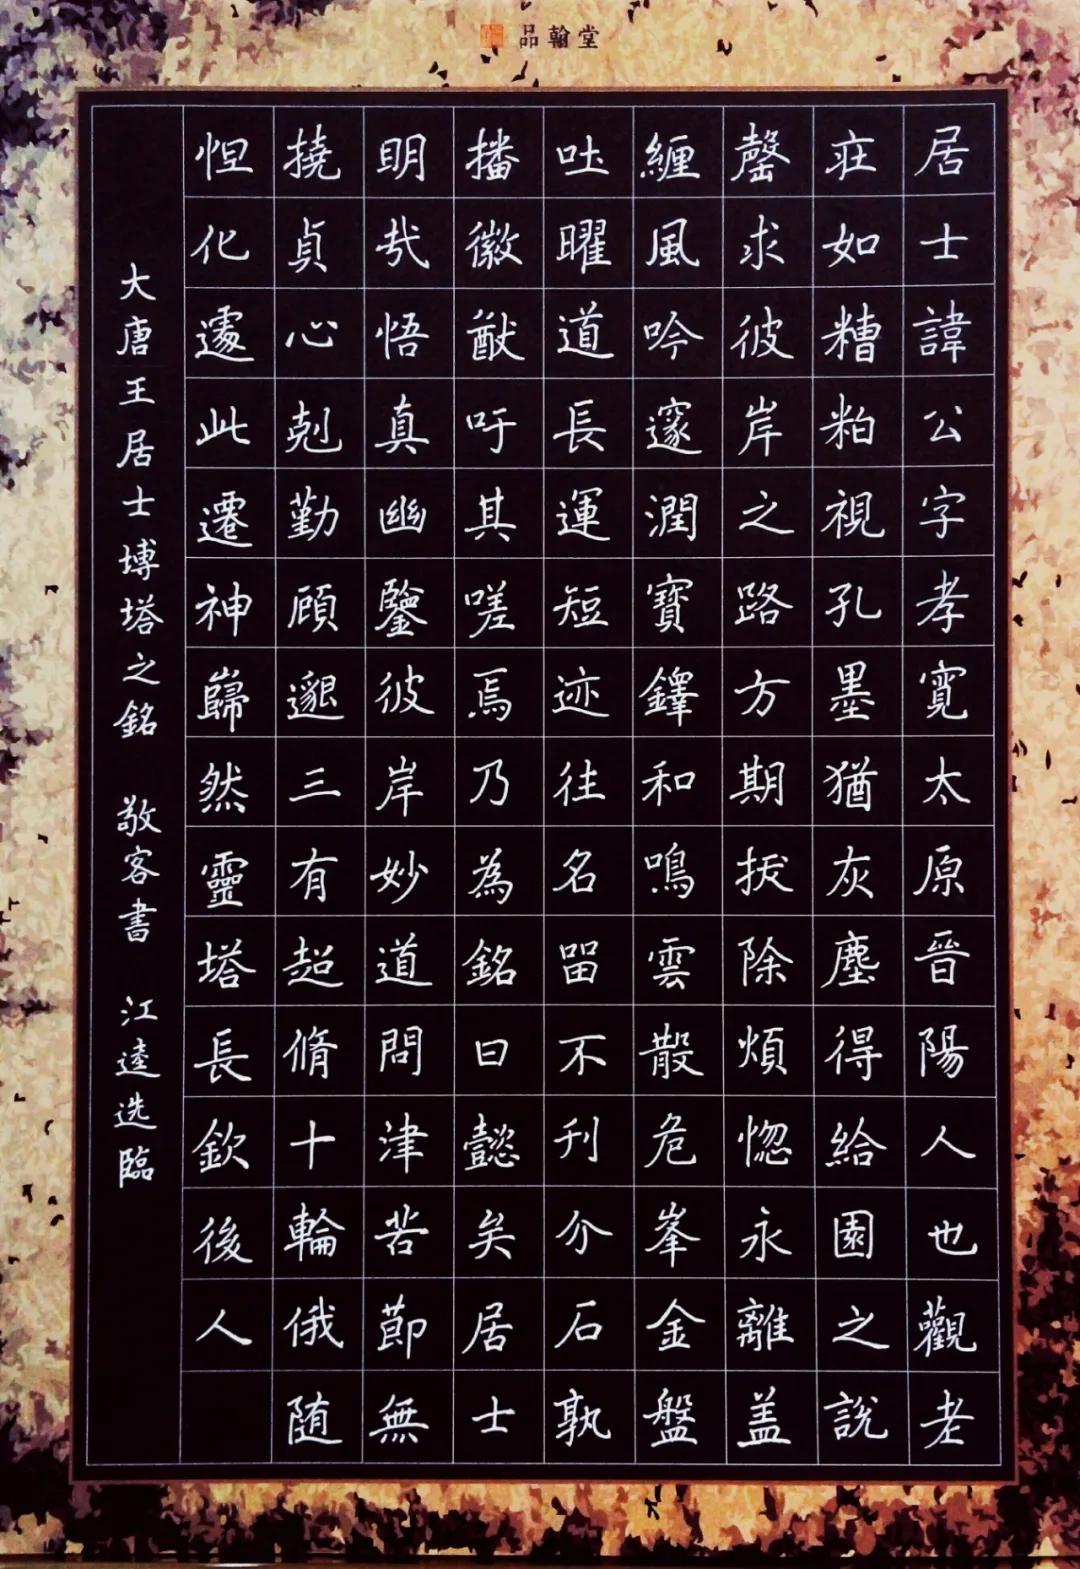 品翰堂
居士諱公字孝寬太原晉陽人也觀老
莊如糟粕視孔墨猶灰塵得給園之說
罄求彼岸之路方期拔除煩惱永離盖
纏風吟邃潤寶鐸和鳴雲散危峯金盤
吐曜道長運短迹往名留不刊介石孰
播徽猷吁其嗟焉乃為銘曰懿矣居士
明哉悟真幽鑒彼岸妙道問津苦節無
撓貞心剋勤顧邈三有超脩十輪俄随
怛化遽此遷神巋然靈塔長欽後人
大唐王居士塼塔之銘 敬客書 江逵选臨